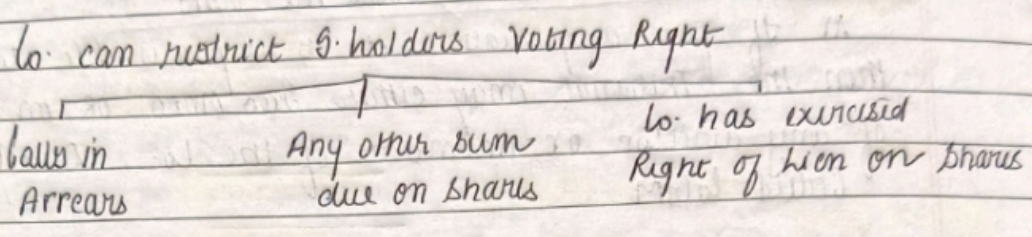 Co. can restrict S. holders Voting Right
Calls in
Arrears
Any other sum
due on shares
Co. has exercised
Right of Lien on Shares